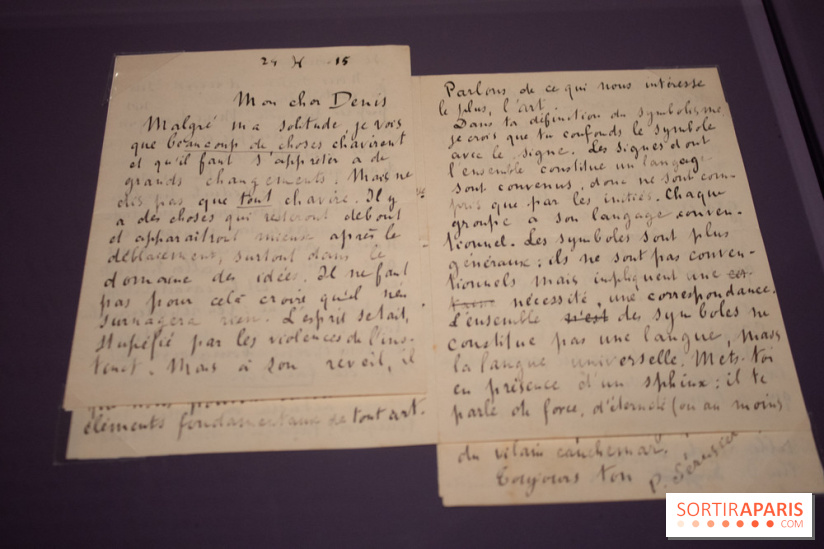 24 15
Mon cher Denis
Malgré ma solitude, je vois
que beaucoup de choses chavirent
et qu'il faut s'apprêter à de
grands changements. Mais ne
dis pas que tout chavire. Il y
a des choses qui resteront debout
et apparaîtront mieux après le
déblacement, surtout dans le
domaine des idées. Il ne faut
pas pour cela croire qu'il n'en
surnagera rien. L'esprit se tait,
stupéfié par les violences de l'ins-
tinct. Mais à son réveil, il
éléments fondamentaux de tout art.
Parlons de ce qui nous intéresse
le plus, l'art.
Dans ta définition du symbolisme
je crois que tu confonds le symbole
avec le signe. Les signes dont
l'ensemble constitue un langage
sont convenus, donc ne sont com-
pris que par les initiés. Chaque
groupe a son langage conven-
tionnel. Les symboles sont plus
généraux; ils ne sont pas conven-
tionnels mais impliquent une
nécessité, une correspondance.
L'ensemble n'est des symboles ne
constitue pas une langue, mais
la langue universelle. Mets-toi
en présence d'un sphinx; il te
parle de force, d'éternité (ou au moins
du vilain cauchemar.
Toujours ton P. Sérusier
SORTIRAPARIS
.COM